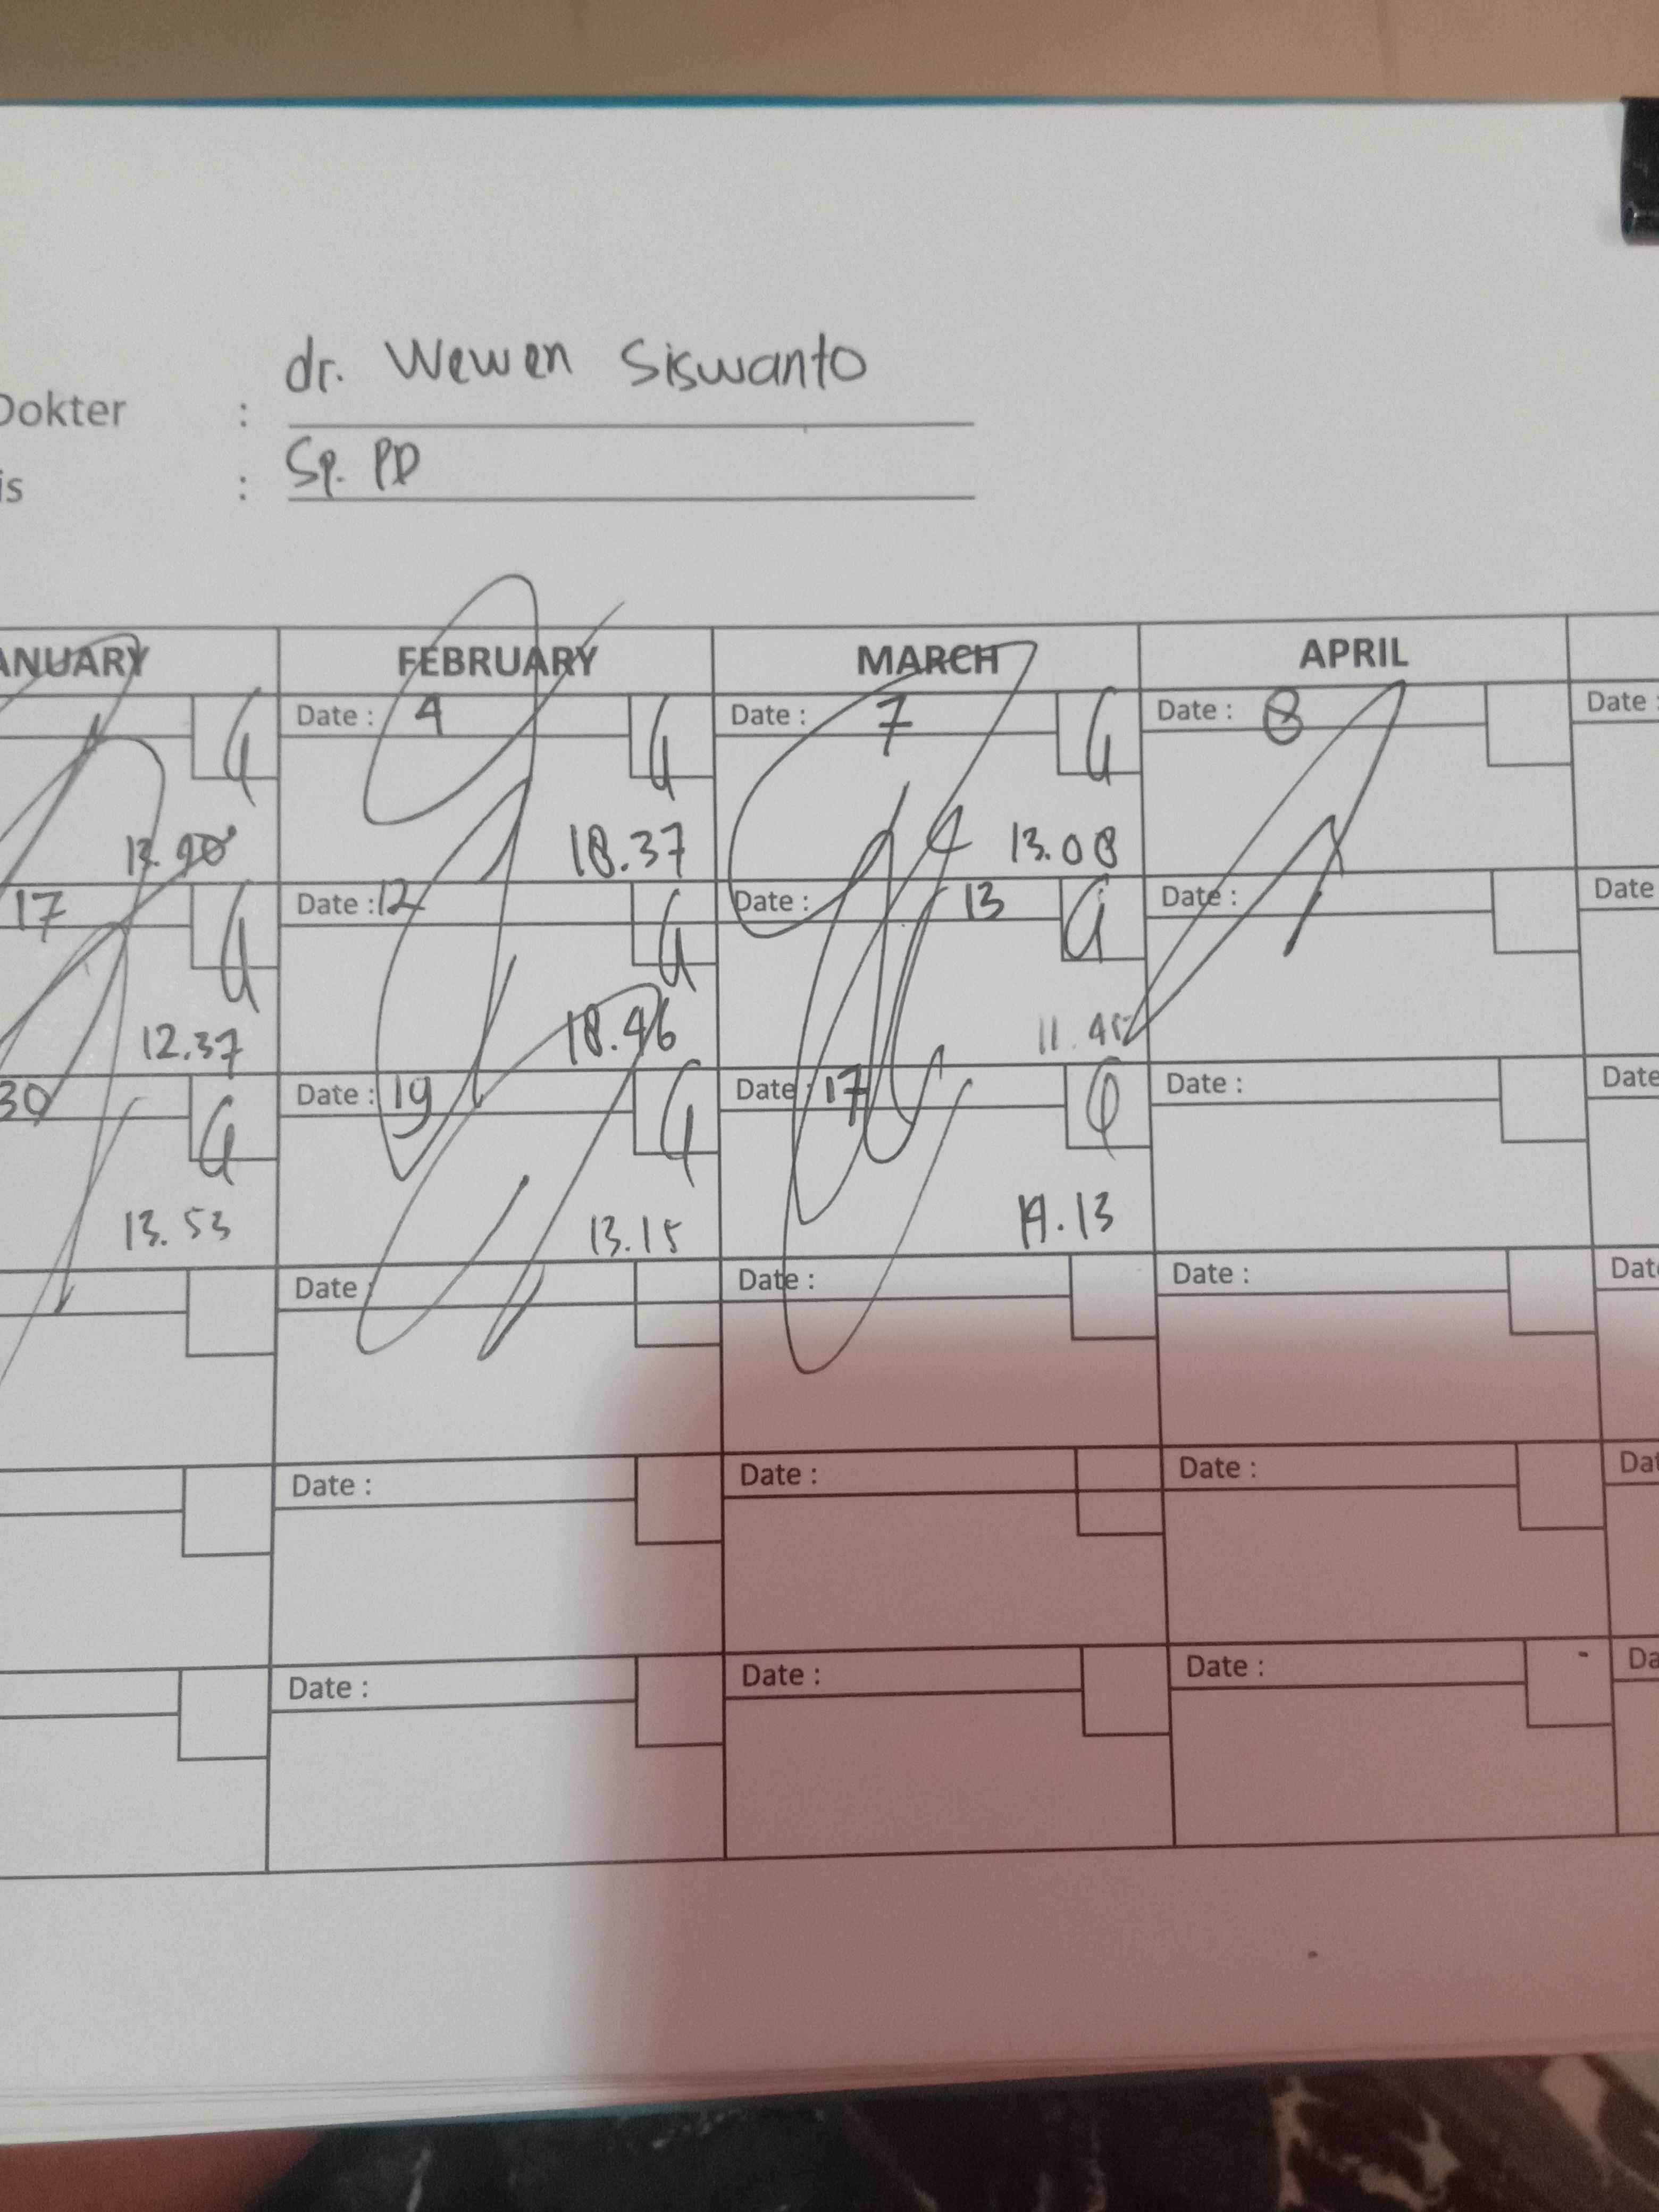 Dokter : dr. Wewen Siswanto
is : Sp. PD
ANUARY FEBRUARY MARCH APRIL
Date : 4 Date : 7 Date : 8 Date :
18.37 13.08
17 Date : 12 Date : 13 Date : Date
12.37 18.46 11.45
30 Date : 19 Date : 17 Date : Date
13.53 13.15 19.13
Date : Date : Date : Date
Date : Date : Date : Dat
Date : Date : Date : Da